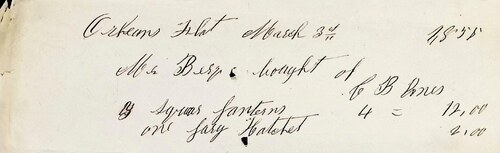 Orleans Flat March 3d 1855
Mr Berge bought of
C B Jones
3 Squar Lanterns 4 = 12,00
one larg Hatchet 2.00